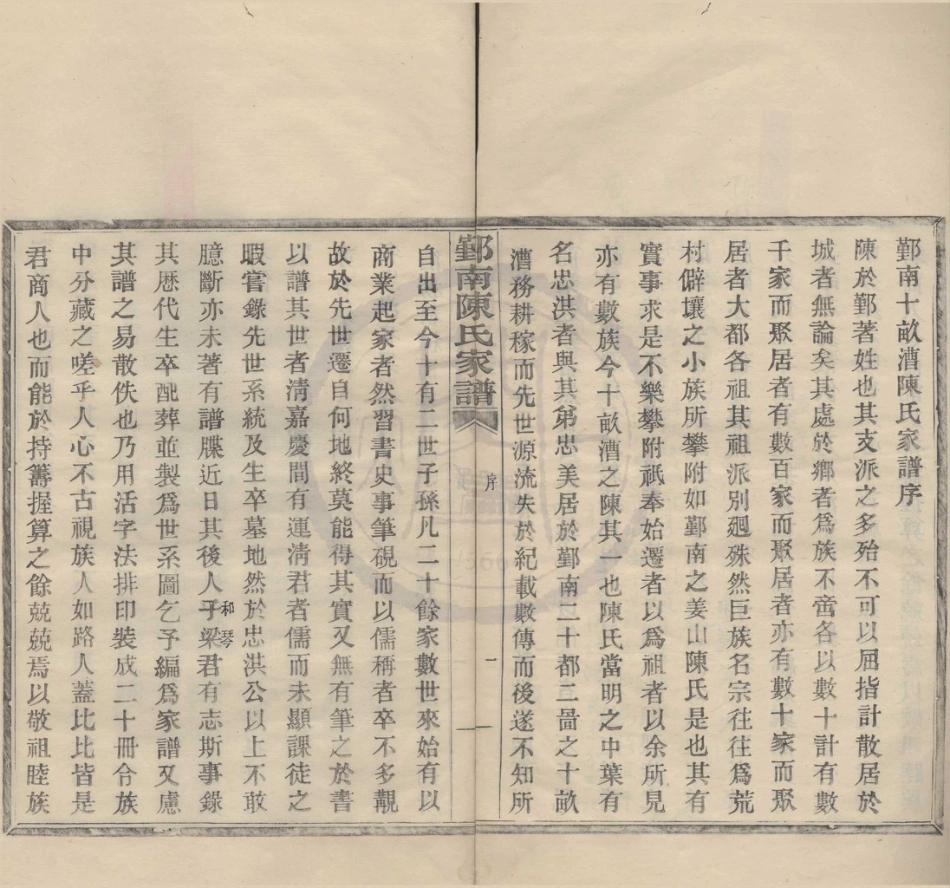 鄞南十畝漕陳氏家譜序
陳於鄞著姓也其支派之多殆不可以屈指計散居於
城者無論矣其處於鄉者爲族不啻各以數十計有數
千家而聚居者有數百家而聚居者亦有數十家而聚
居者大都各祖其祖派別迥殊然巨族名宗往往爲荒
村僻壤之小族所攀附如鄞南之姜山陳氏是也其有
實事求是不樂攀附祇奉始遷者以爲祖者以余所見
亦有數族今十畝漕之陳其一也陳氏當明之中葉有
名忠洪者與其弟忠美居於鄞南二十都二啚之十畝
漕務耕稼而先世源流失於紀載數傳而後遂不知所
鄞南陳氏家譜
序
一
自出至今十有二世子孫凡二十餘家數世來始有以
商業起家者然習書史事筆硯而以儒稱者卒不多覯
故於先世遷自何地終莫能得其實又無有筆之於書
以譜其世者淸嘉慶間有連淸君者儒而未顯課徒之
暇嘗錄先世系統及生卒墓地然於忠洪公以上不敢
臆斷亦未著有譜牒近日其後人子梁和琴君有志斯事錄
其歷代生卒配葬並製爲世系圖乞予編爲家譜又慮
其譜之易散佚也乃用活字法排印裝成二十冊令族
中分藏之嗟乎人心不古視族人如路人蓋比比皆是
君商人也而能於持籌握算之餘兢兢焉以敬祖睦族